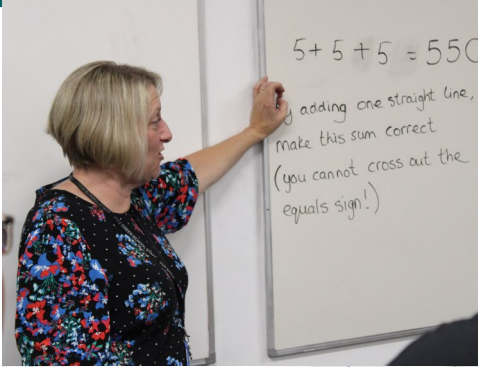 5+ 5 + 5 = 550
adding one straight line,
make this sum correct
(you cannot cross out the
equals sign!)